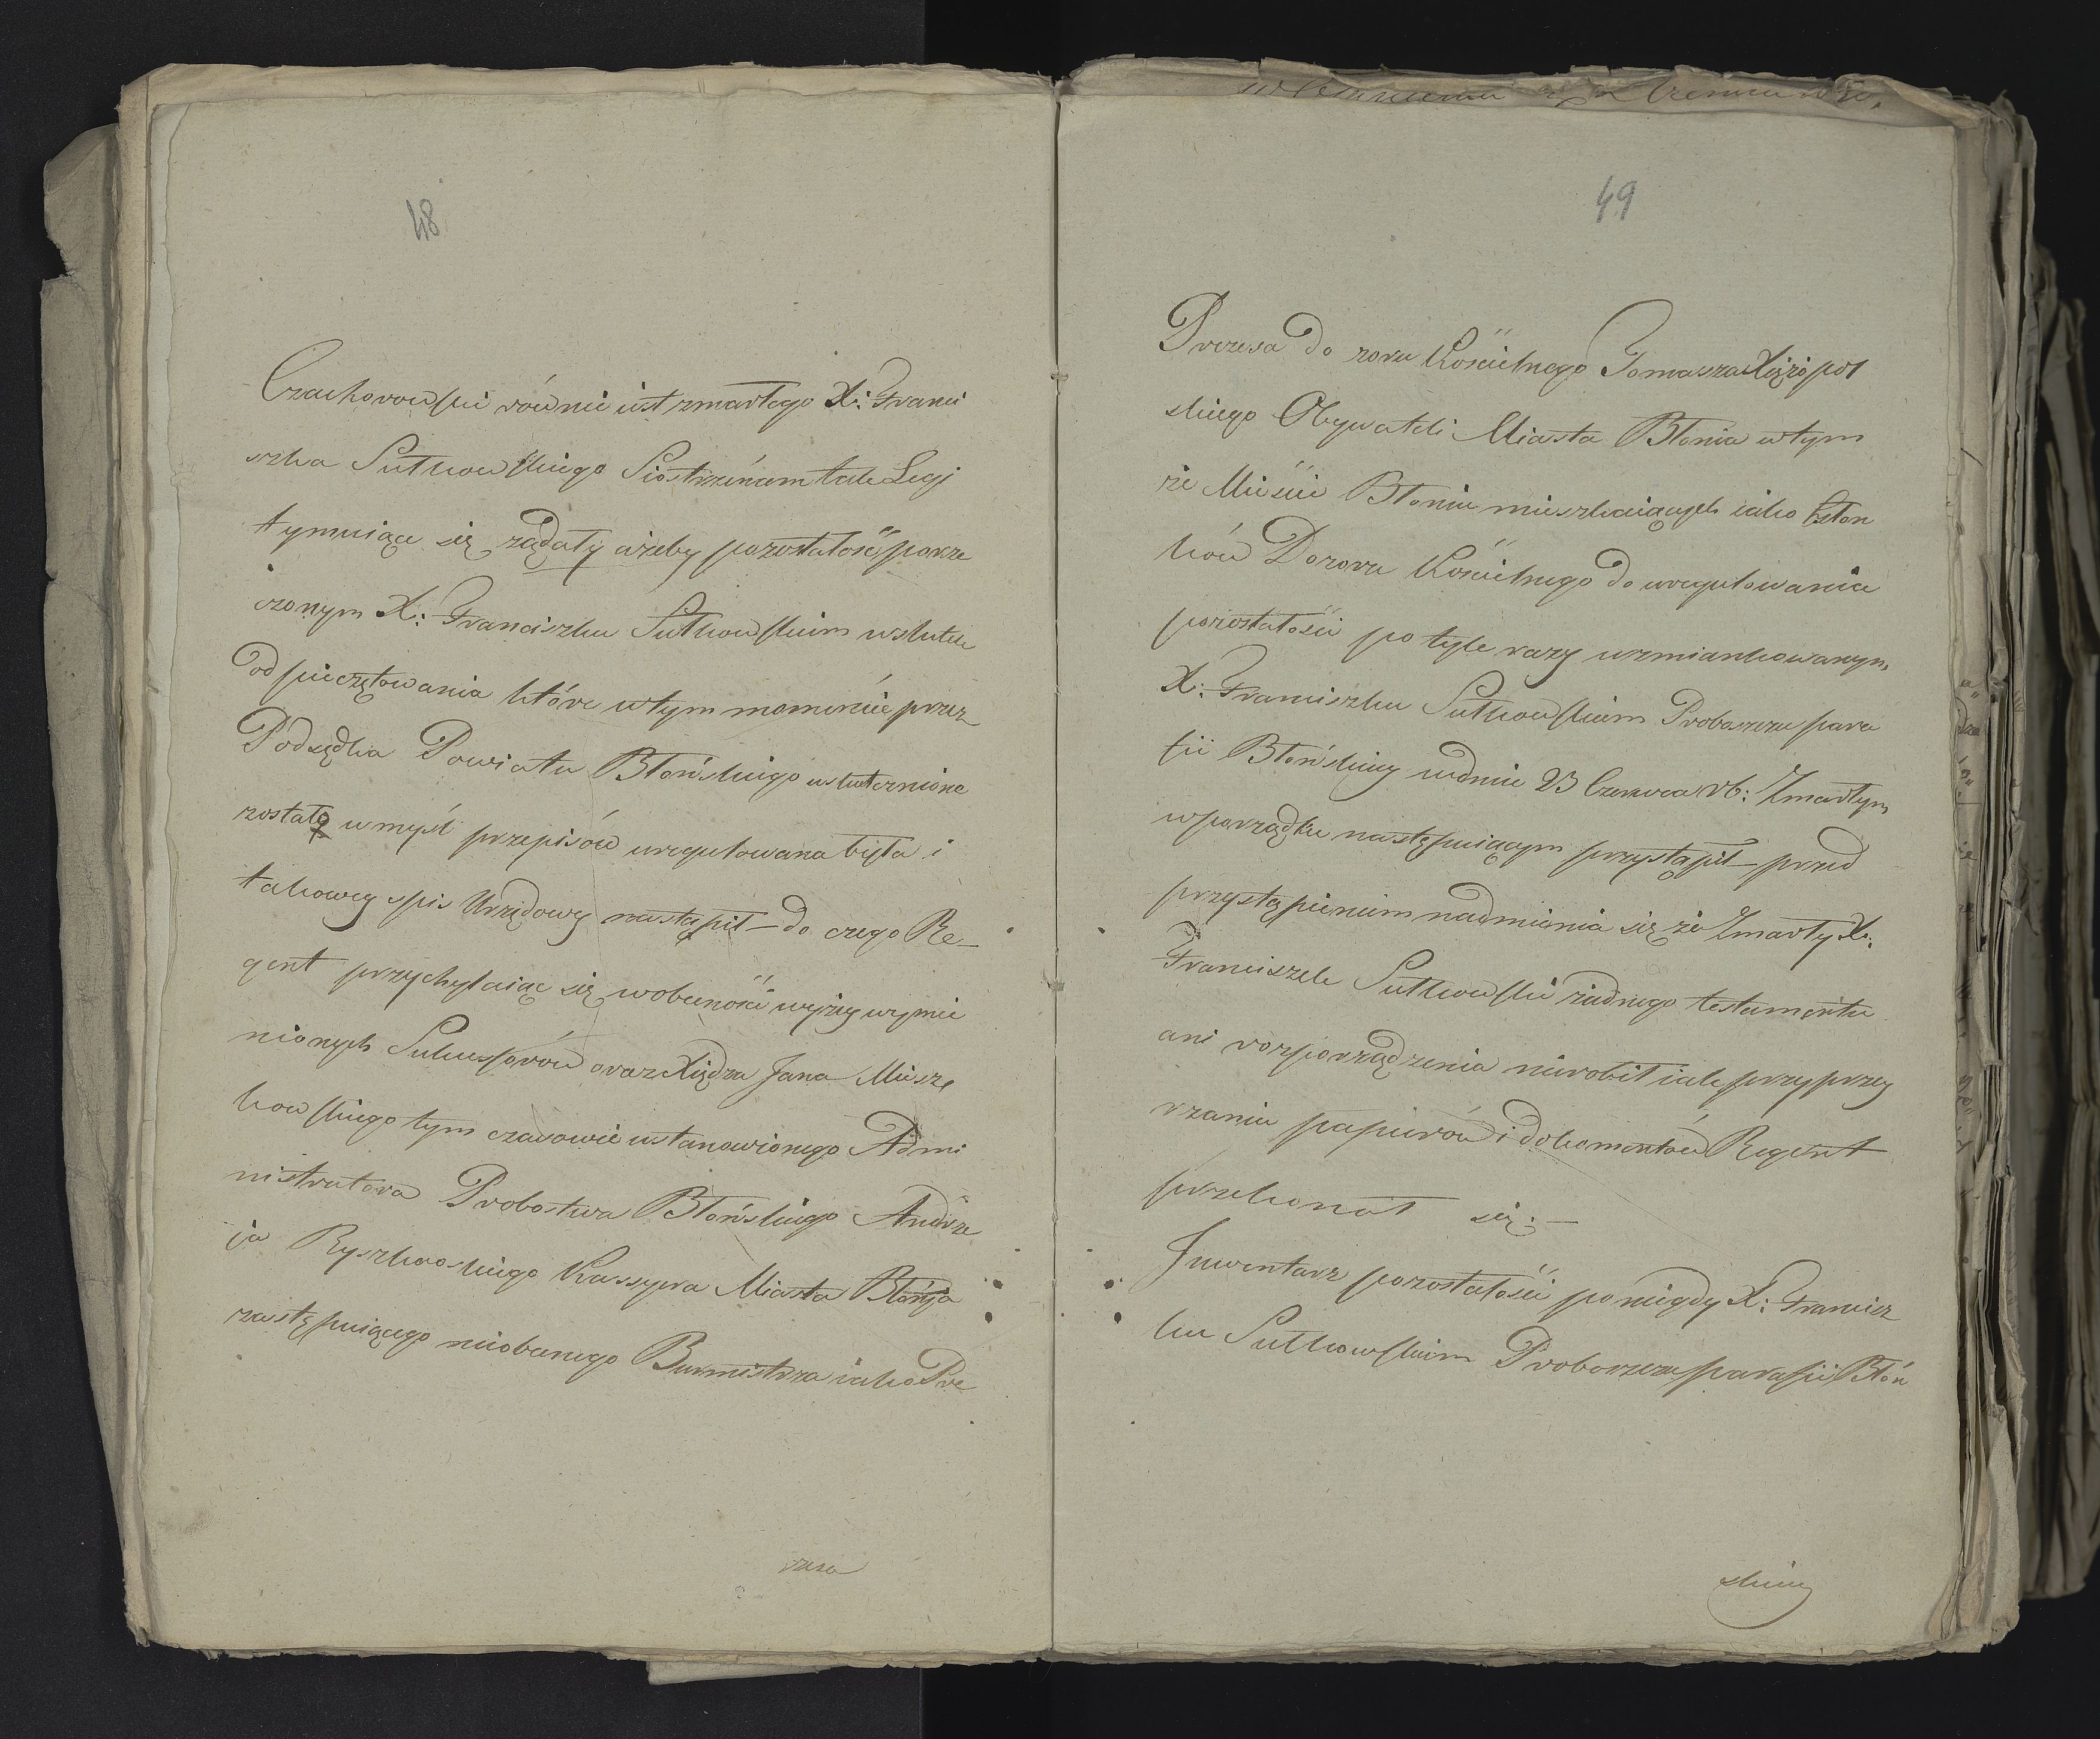 48
Czachorowski równie iest zmarłego X: Franci
szka Sutkowskiego Siostrzenem tak Legi
tymuiąc się żądały ażeby pozostałość po rze
czonym X: Franciszku Sutkowskim wskutek
odpieczętowania które w tym momencie przez
Podsędka Powiatu Błońskiego uskutecznione
zostało w myśl przepisów uregulowana była i
takowey spis Urzędowy nastąpił – do czego Re-
gent przychylaiąc się w obecności wyżey wymie
nionych Sukcessorów oraz Xiędza Jana Miszе
kowskiego tym czasowie ustanowionego Admi
nistratora Probostwa Błońskiego Andrze
ja Ryszkoskiego Kassyera Miasta Błonia
zastępuiącego nieobecnego Burmistrza iako Pre
zesa
49
Prezesa Dozoru Kościelnego Tomasza Xiężopol
skiego Obywateli Miasta Błonia w tym
że Mieście Błoniu mieszkaiących iako Człon
ków Dozoru Kościelnego do uregulowania
pozostałości po tyle razy wzmiankowanym
X: Franciszku Sutkowskim Proboszczu para
fii Błońskiey w dniu 23 Czerwca rb: Zmarłym
w porządku następuiącym przystąpił – przed
przystąpieniem nadmienia się że Zmarły X:
Franciszek Sutkowski żadnego testamentu
ani rozporządzenia nierobił iak przy przey
rzaniu papierów i dokomentów Regent
przekonał się. –
Inwentarz pozostałości po niegdy X: Francisz
ku Sutkowskim Proboszczu parafii Błoń
skiey